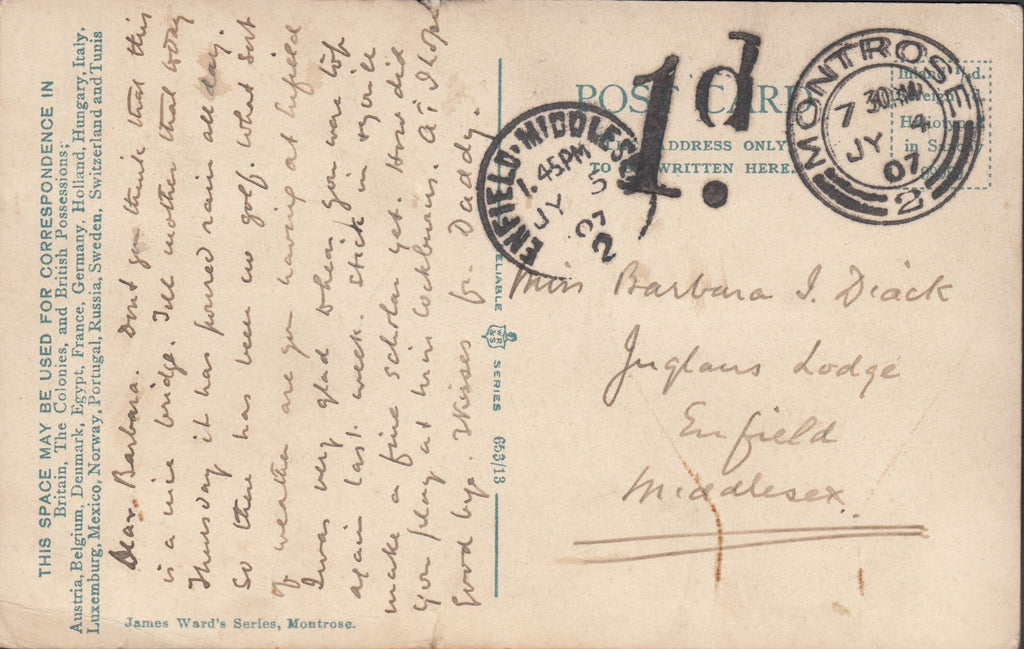 THIS SPACE MAY BE USED FOR CORRESPONDENCE IN
Britain, The Colonies, and British Possessions;
Austria, Belgium, Denmark, Egypt, France, Germany, Holland, Hungary, Italy,
Luxemburg, Mexico, Norway, Portugal, Russia, Sweden, Switzerland and Tunis
Dear Barbara. Dont you think that this
is a nice bridge. Tell mother that today
Thursday it has poured rain all day.
So there has been no golf. What sort
of weather are you having at Enfield
I was very glad when you were top
again last week. Stick in you'll
make a fine scholar yet. How did
you play at Miss Cockburns. A1 I hope
Good bye. Kisses fr. Daddy.
James Ward's Series, Montrose.
RELIABLE
WR&S
SERIES
653/13
POST CARD
ADDRESS ONLY
TO BE WRITTEN HERE.
1d.
ENFIELD·MIDDLESEX
1.45PM
JY 5
07
2
MONTROSE
7 30AM
JY 4
07
2
Miss Barbara I. Diack
Inglaus Lodge
Enfield
Middlesex.